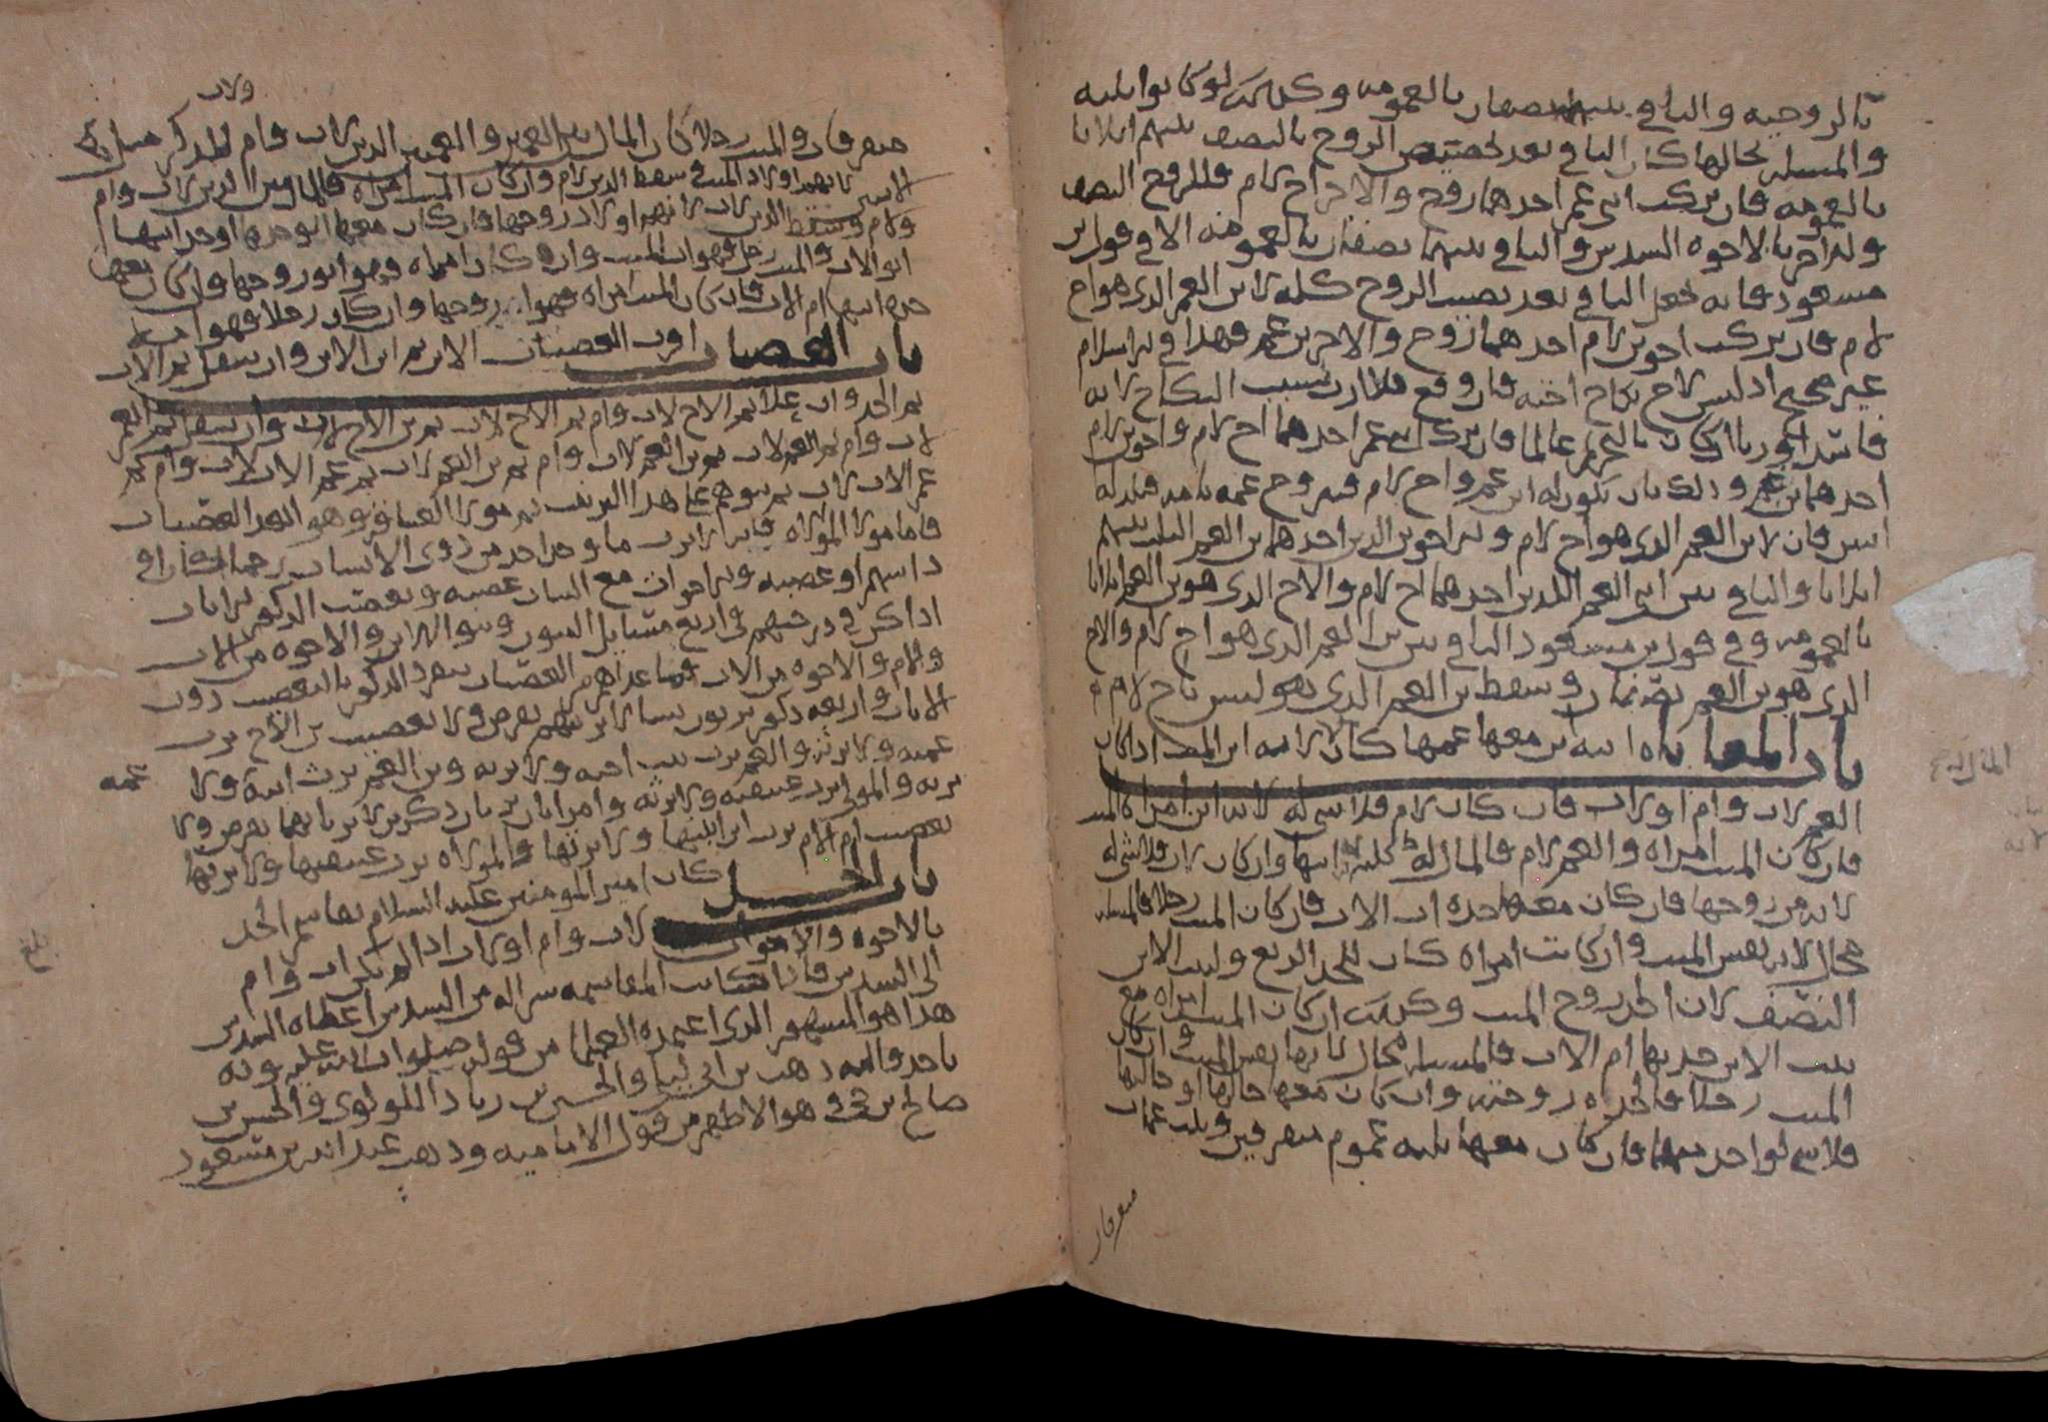 بالزوجيه والباقي بينهما نصفان بالعمومه وكذلك لو كانوا ثلثه
والمسئله بحالها كان الباقي بعد تخصيص الزوج بالنصف بينهم اثلاثا
بالعمومه فان تركت ابني عم احدهما زوج والاخر اخ لام فللزوج النصف
وللاخر بالاخوه السدس والباقي بينهما نصفان بالعمومه الا في قول ابن
مسعود فانه يجعل الباقي بعد نصيب الزوج كله لابن العم الذي هو اخ
لام فان تركت اخوين لام احدهما زوج والاخر بن عم فهذا في الاسلام
غير صحيح اذ ليس لاخ نكاح اخته فان وقع فلا ارث بسبب النكاح لانه
فاسد او زنا ان كان بالتحريم عالما فان ترك ابني عم احدهما اخ لام واخوين لام
احدهما بن عم وذلك بان يكون له ابن عم واخ لام فتزوج عمه بامه فتلد له
ابنين فان لابن العم الذي هو اخ لام وللاخوين الذين احدهما بن العم الثلث بينهم
اثلاثا والباقي بين ابني العم اللذين احدهما اخ لام والاخ الذي هو بن العم اثلاثا
بالعمومه وفي قول بن مسعود الباقي بين بن العم الذي هو اخ لام والاخ
الذي هو بن العم نصفان وسقط بن العم الذي هو ليس باخ لام
باب المعاياه ابنه ابن معها عمها كان لابنه ابن الميت اذا كان
العم لاب وام او لاب فان كان لام فلا شي له لانه ابن امراه الميت
فان كان الميت امراه والعم لام فالمال له كله لانه ابنها وان كان لاب فلا شي له
لانه من زوجها فان كان معها جده اب الاب فان كان الميت رجلا فالمسئله
بحالها لانه نفس الميت وان كانت امراه كان للجد الربع ولبنت الابن
النصف لان الجد زوج الميت وكذلك ان كان الميت امراه مع
بنت الابن جدتها ام الاب فالمسئله بحالها لانها نفس الميت وان كان
الميت رجلا فالجده زوجته وان كان معها خالها او خالتها
فلا شي لواحد منهما فان كان معها ثلثه عموم متفرقين وثلث عمات
متفرقات
متفرقات والميت رجلا كان المال بين العمين والعمتين الذين لاب وام للذكر مثل حظ
ولاب
الانثيين لانهم اولاد الميت وسقط الذين لام وان كان الميت امراه فالمال بين الذين لاب وام
ولام وسقط الذين لاب لانهم اولاد زوجها فان كان معها ابو جدها او جد ابيها
ابو الاب والميت رجل فهو اب الميت وان كان امراه فهو ابو زوجها وان كان معها
جد ابيها ام الاب فان كان الميت امراه فهو ابو زوجها وان كان رجلا فهو اب
باب العصبات اقرب العصبات الابن ثم ابن الابن وان سفل ثم الاب
ثم الجد وان علا ثم الاخ لاب وام ثم الاخ لاب ثم بن الاخ لاب وان سفل ثم العم
لاب وام ثم العم لاب ثم بن العم لاب وام ثم بن العم لاب ثم عم الاب لاب وام ثم
عم الاب لاب ثم بنوهم على هذا الترتيب ثم مولا العتاقه وهو ابعد العصبات
فاما مولا الموالاه فانه لا يرث ما وجد احد من ذوي الانساب رحما كان او
ذا سهم او عصبه والاخوات مع البنات عصبه وتعصب الذكور الاناث
اذا كن في درجتهم في اربع مسايل البنون وبنو الابن والاخوه من الاب
والام والاخوه من الاب وما عداهم من العصبات ينفرد الذكور بالتعصيب دون
الاناث واربعه ذكور يرثون نسا لا يرثنهم بفرض ولا تعصيب بن الاخ يرث
عمته ولا ترثه والعم يرث بنت اخيه ولا ترثه وبن العم يرث ابنة
عمه
ولا ترثه والمولى يرث عتيقته ولا ترثه وامراتان ترثان ذكرين لا يرثانهما بفرض ولا
تعصيب ام الام ترث ابن ابنتها ولا يرثها والمولاه ترث عتيقها ولا يرثها
باب الجد كان امير المومنين عليه السلام يقاسم الجد
بالاخوه والاخوات لاب وام او لاب اذا لم يكن لاب وام
الى السدس فاذا كانت المقاسمه شرا له من السدس اعطاه السدس
هذا هو المشهور الذي اعتمده العلما من قوله صلوات الله عليه وبه
ناخذ واليه ذهب بن ابي ليلى والحسن بن زياد اللولوي والحسن بن
صالح بن حي وهو الاظهر من قول الاماميه وذهب عبد الله بن مسعود